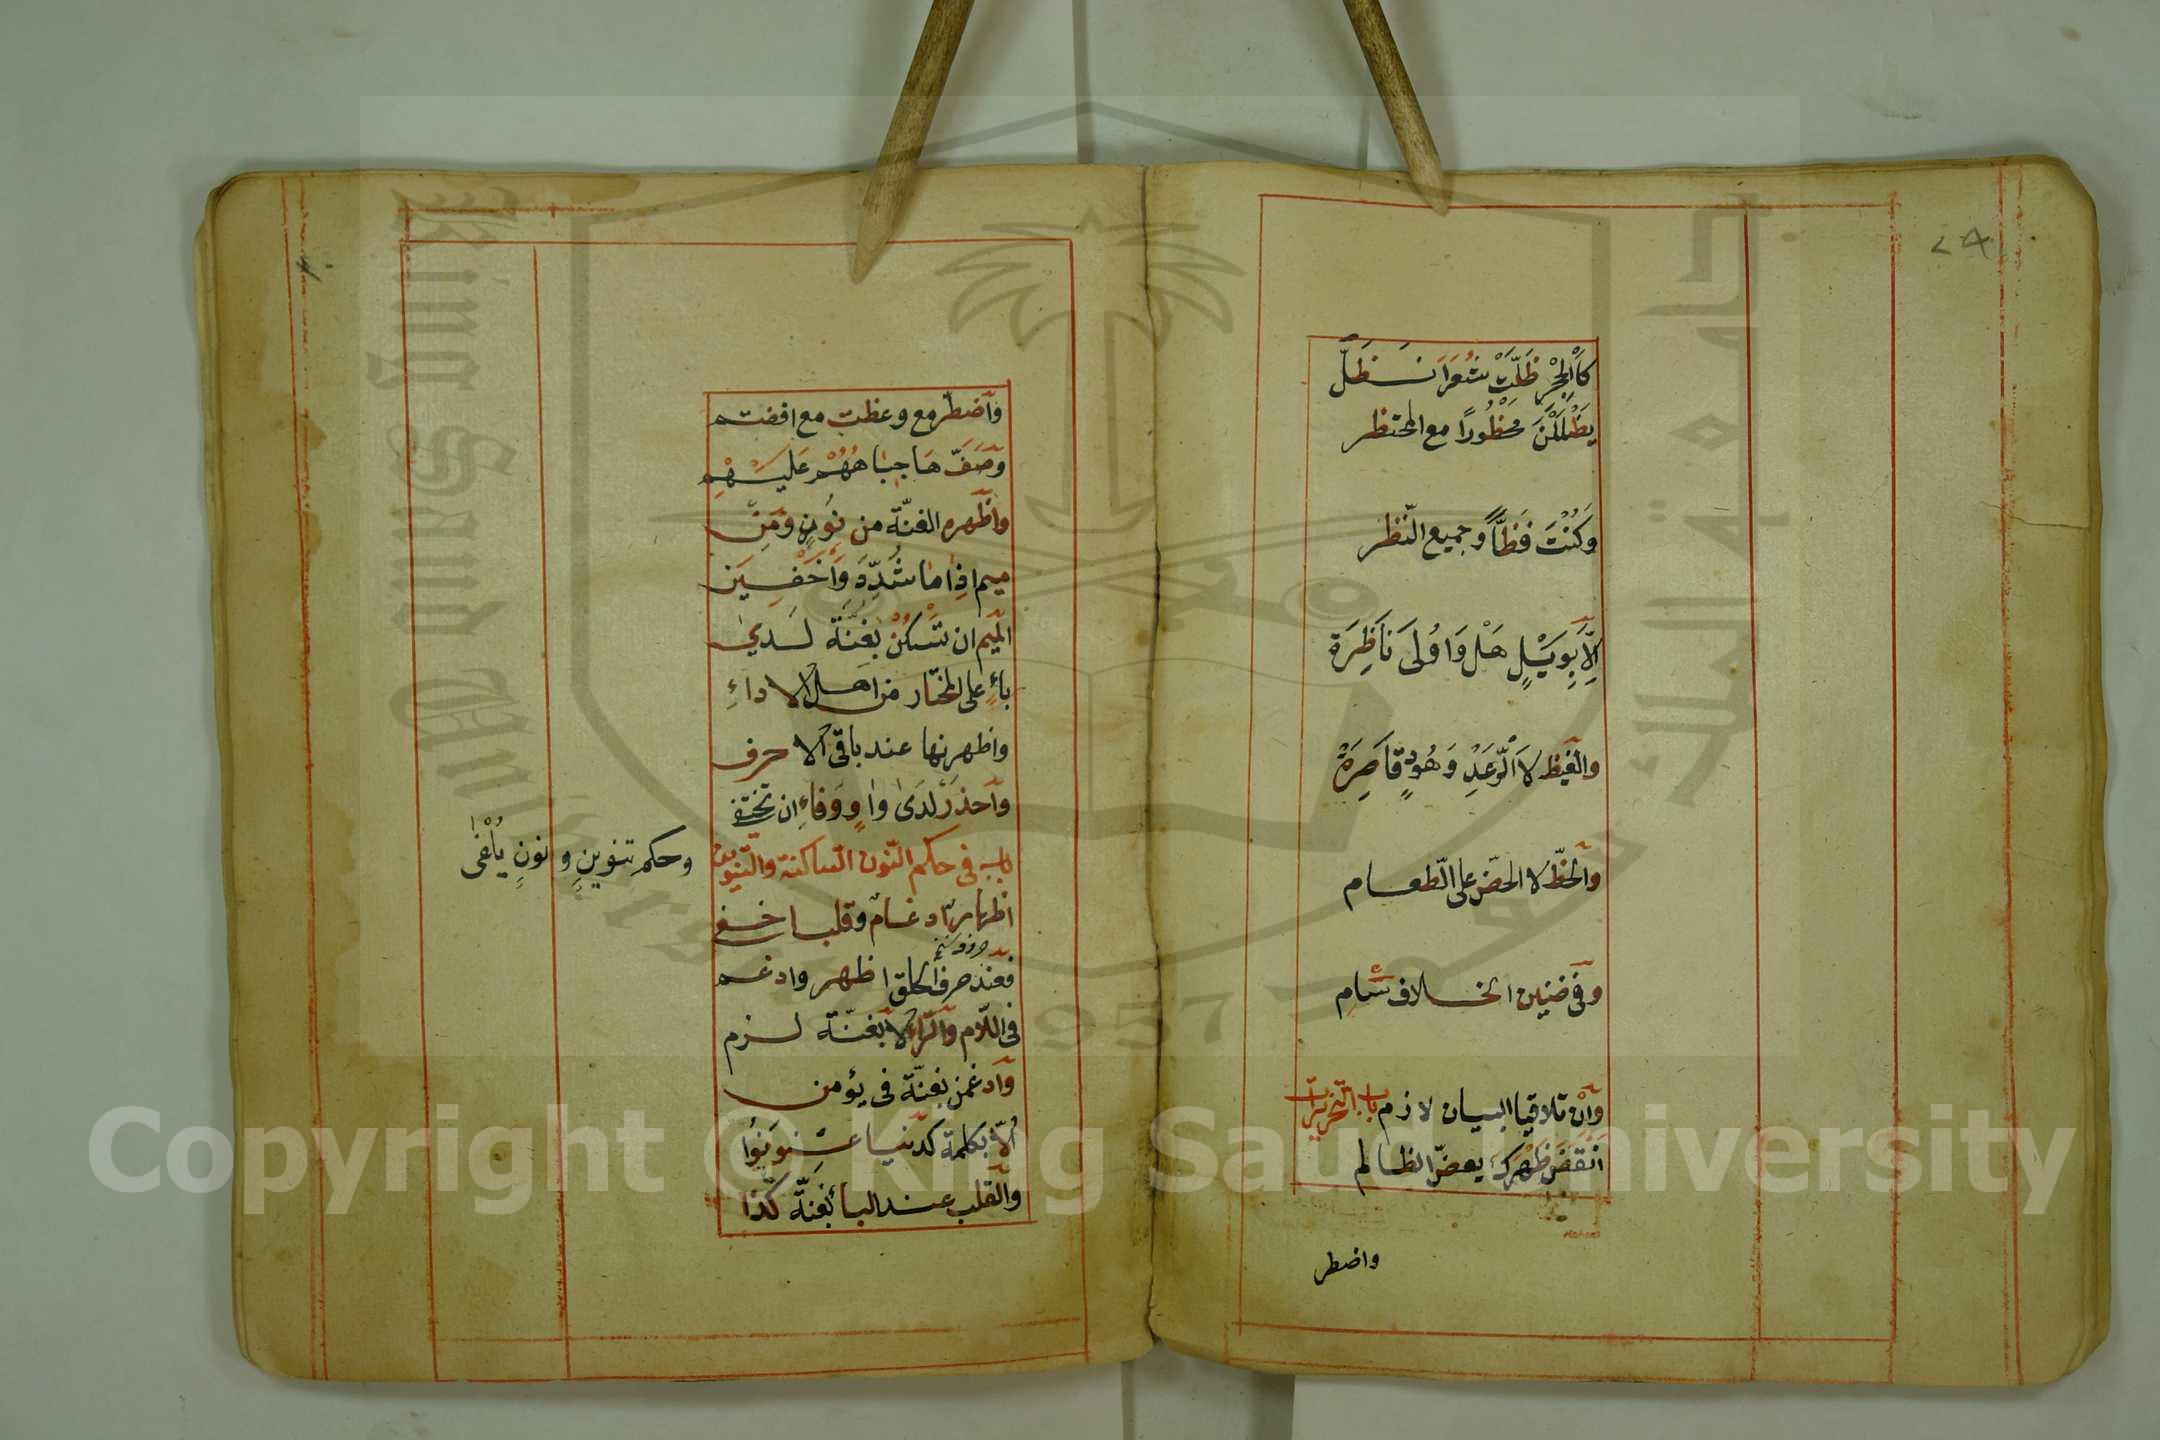 كالحجر ظَلَّتْ شُعَرَا نَظَلُّ
يَظْلَلْنَ مَحْظُورًا مع المحتظر
وَكُنْتَ فَظًّا وجميع النّظر
اِلّا بِوَيْلٍ هَلْ وَاُولَى نَاظِرَة
والغَيظ لا الرَّعْدِ وَهُودٍ قَاصِرَةْ
والحظّ لا الحضّ على الطّعام
وفى ضنين الخلاف سَامِ
باب التحذيرات
وَاِنْ تلاقيا البيان لازم
اَنْقَضَ ظَهْرَكَ يعضّ الظالم
واضطر
واضطّر مع وعظت مع افضتم
وَصَفّ هَا جباههُمْ عَلَيْهِم
واَظْهِرِ الغنّة من نُونٍ وَمِنْ
ميم اذا ما شُدِّدَ وَاَخْفِيَن
الميم ان تَسْكُنْ بِغُنَّة لَدي
باءٍ على المختار من اهل الاداءِ
واظهرنها عند باقى الاحرف
واحذر لَدَى واوٍ وَفاءٍ ان تختفى
باب فى حكم النّون السّاكنة والتّنوين
وحكم تنوينٍ ونونٍ يُلْفَى
اظهار ادغام وقلب اخفى
فعند حرف الحلق اظهر وادغم
فى اللّام والرّاء لا بغنّة لزم
وادغمن بغنّة فى يؤمن
الّا بكلمة كدنيا عنونوا
والقلب عند البا بغنّة كذا